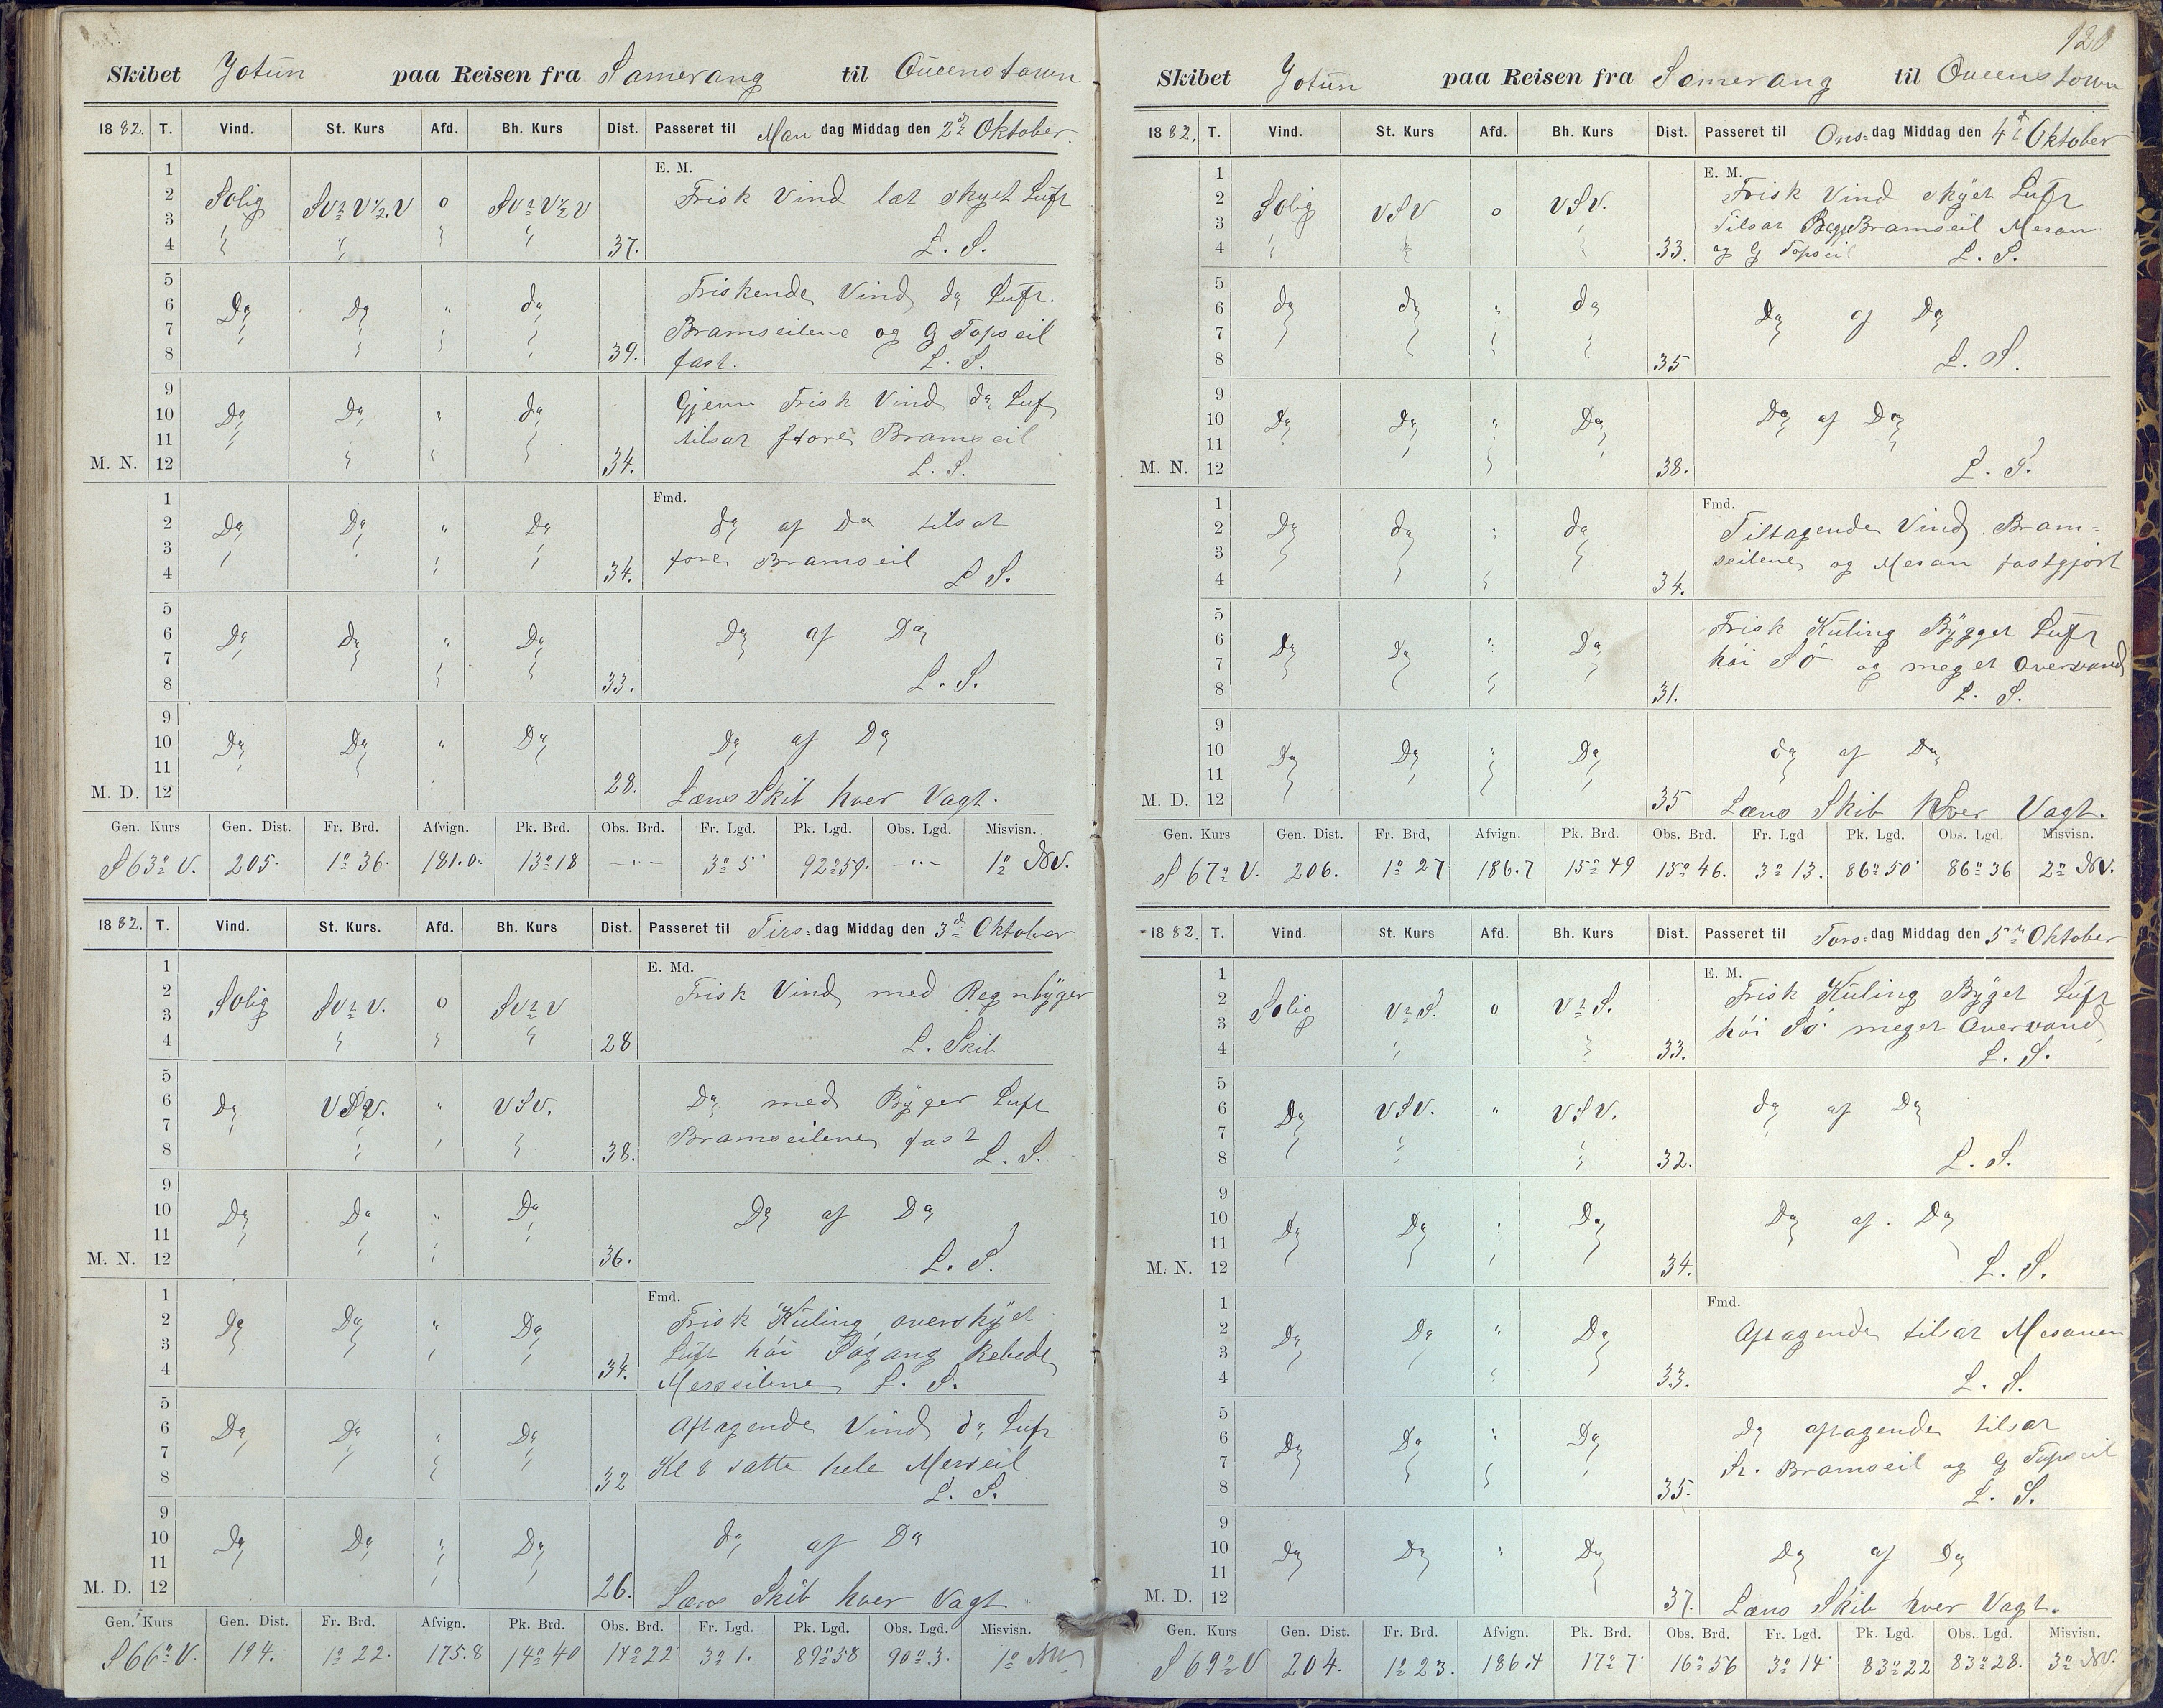 120
Skibet Jotün paa Reisen fra Samerang til Queenstown
1882. T. Vind. St. Kurs Afd. Bh. Kurs Dist. Passeret til Man dag Middag den 2den Oktober.
E. M.
1
2 Solig SV½V½V o SV½V½V Frisk Vind let skyet Luft
3
4 37. L. S.
5
6 Do Do " do Friskende Vind do Luft.
7 Bramseilene og G Topseil
8 39. fast. L. S.
9
10 Do Do " do Gjenn Frisk Vind do Luft
11 tilsat store Bramseil
M. N. 12 34. L. S.
Fmd.
1
2 Do Do " Do do af Do tilsat
3 fore Bramseil
4 34. L S.
5
6 Do Do " Do Do af Do
7
8 33. L. S.
9
10 Do Do " Do Do af Do
11
M. D. 12 28. Læns Skib hver Vagt.
Gen. Kurs Gen. Dist. Fr. Brd. Afvign. Pk. Brd. Obs. Brd. Fr. Lgd. Pk. Lgd. Obs. Lgd. Misvisn.
S 63° V. 205. 1° 36. 181.0. 13° 18 — " — 3° 5' 92° 59. — " — 1° NV.
1882. T. Vind. St. Kurs. Afd. Bh. Kurs Dist. Passeret til Tirs- dag Middag den 3de Oktober
E. Md.
1
2 Solig SV½V. o SV½V Frisk Vind med Regnbÿger
3
4 28 L. Skib
5
6 Do VSV. " VSV. Do med Bÿger Luft
7 Bramseilene fast
8 38. L. S.
9
10 Do Do " Do Do af Do
11
M. N. 12 36. L. S.
Fmd.
1
2 Do Do " Do Frisk Küling overskÿet
3 Luft höi Sögang Rebede
4 34. Merseilene L. S.
5
6 Do Do " Do Aftagende Vind do Luft
7 Kl 8 satte hele Merseil
8 32 L. S.
9
10 Do Do " Do do af Do
11
M. D. 12 26. Læns Skib hver Vagt
Gen. Kurs Gen. Dist. Fr. Brd. Afvign. Pk. Brd. Obs. Brd. Fr. Lgd. Pk. Lgd. Obs. Lgd. Misvisn.
S 66° V. 194. 1° 22. 175.8 14° 40 14° 22 3° 1. 89° 58 90° 3. 1° NV
Skibet Jotün paa Reisen fra Samerang til Queenstown
1882. T. Vind. St. Kurs Afd. Bh. Kurs Dist. Passeret til Ons- dag Middag den 4de Oktober
E. M.
1
2 Solig VSV o VSV. Frisk Vind skÿet Luft
3 Tilsat Begge Bramseil Mesan
4 33. og G Topseil L. S.
5
6 do do " do Do af Do
7
8 35 L. S.
9
10 Do Do " Do Do af Do
11
M. N. 12 38. L. S.
Fmd.
1
2 Do do " do Tiltagende Vind. Bram-
3 seilene og Mesan fastgjort
4 34.
5
6 Do Do " Do Frisk Küling Bÿget Luft
7 höi Sö og meget Overvand
8 31. L. S.
9
10 Do Do " Do do af Do
11
M. D. 12 35 Læns Skib hver Vagt.
Gen. Kurs Gen. Dist. Fr. Brd. Afvign. Pk. Brd. Obs. Brd. Fr. Lgd Pk. Lgd. Obs. Lgd. Misvisn.
S 67° V. 206. 1° 27 186.7 15° 49 15° 46. 3° 13. 86° 50' 86° 36 2° NV.
1882. T. Vind St. Kurs Afd. Bh. Kurs Dist. Passeret til Tors- dag Middag den 5te Oktober
E. M.
1
2 Solig V½S. o V½S. Frisk Küling Bÿget Luft
3 höi Sö meget Overvand
4 33. L. S.
5
6 Do VSV. " VSV. do af Do
7
8 32. L. S.
9
10 Do Do " Do Do af Do
11
M. N. 12 34. L. S.
Fmd.
1
2 Do Do " Do Aftagende tilsat Mesanen
3
4 33. L. S.
5
6 Do Do " Do Do aftagende tilsat
7 St. Bramseil og G Topseil
8 35. L. S.
9
10 Do Do " Do Do af Do
11
M. D. 12 37. Læns Skib hver Vagt.
Gen. Kurs Gen. Dist. Fr. Brd. Afvign. Pk. Brd. Obs. Brd. Fr. Lgd. Pk. Lgd. Obs. Lgd. Misvisn.
S 69° V 204. 1° 23. 186.4 17° 7' 16° 56 3° 14' 83° 22 83° 28. 3° NV.